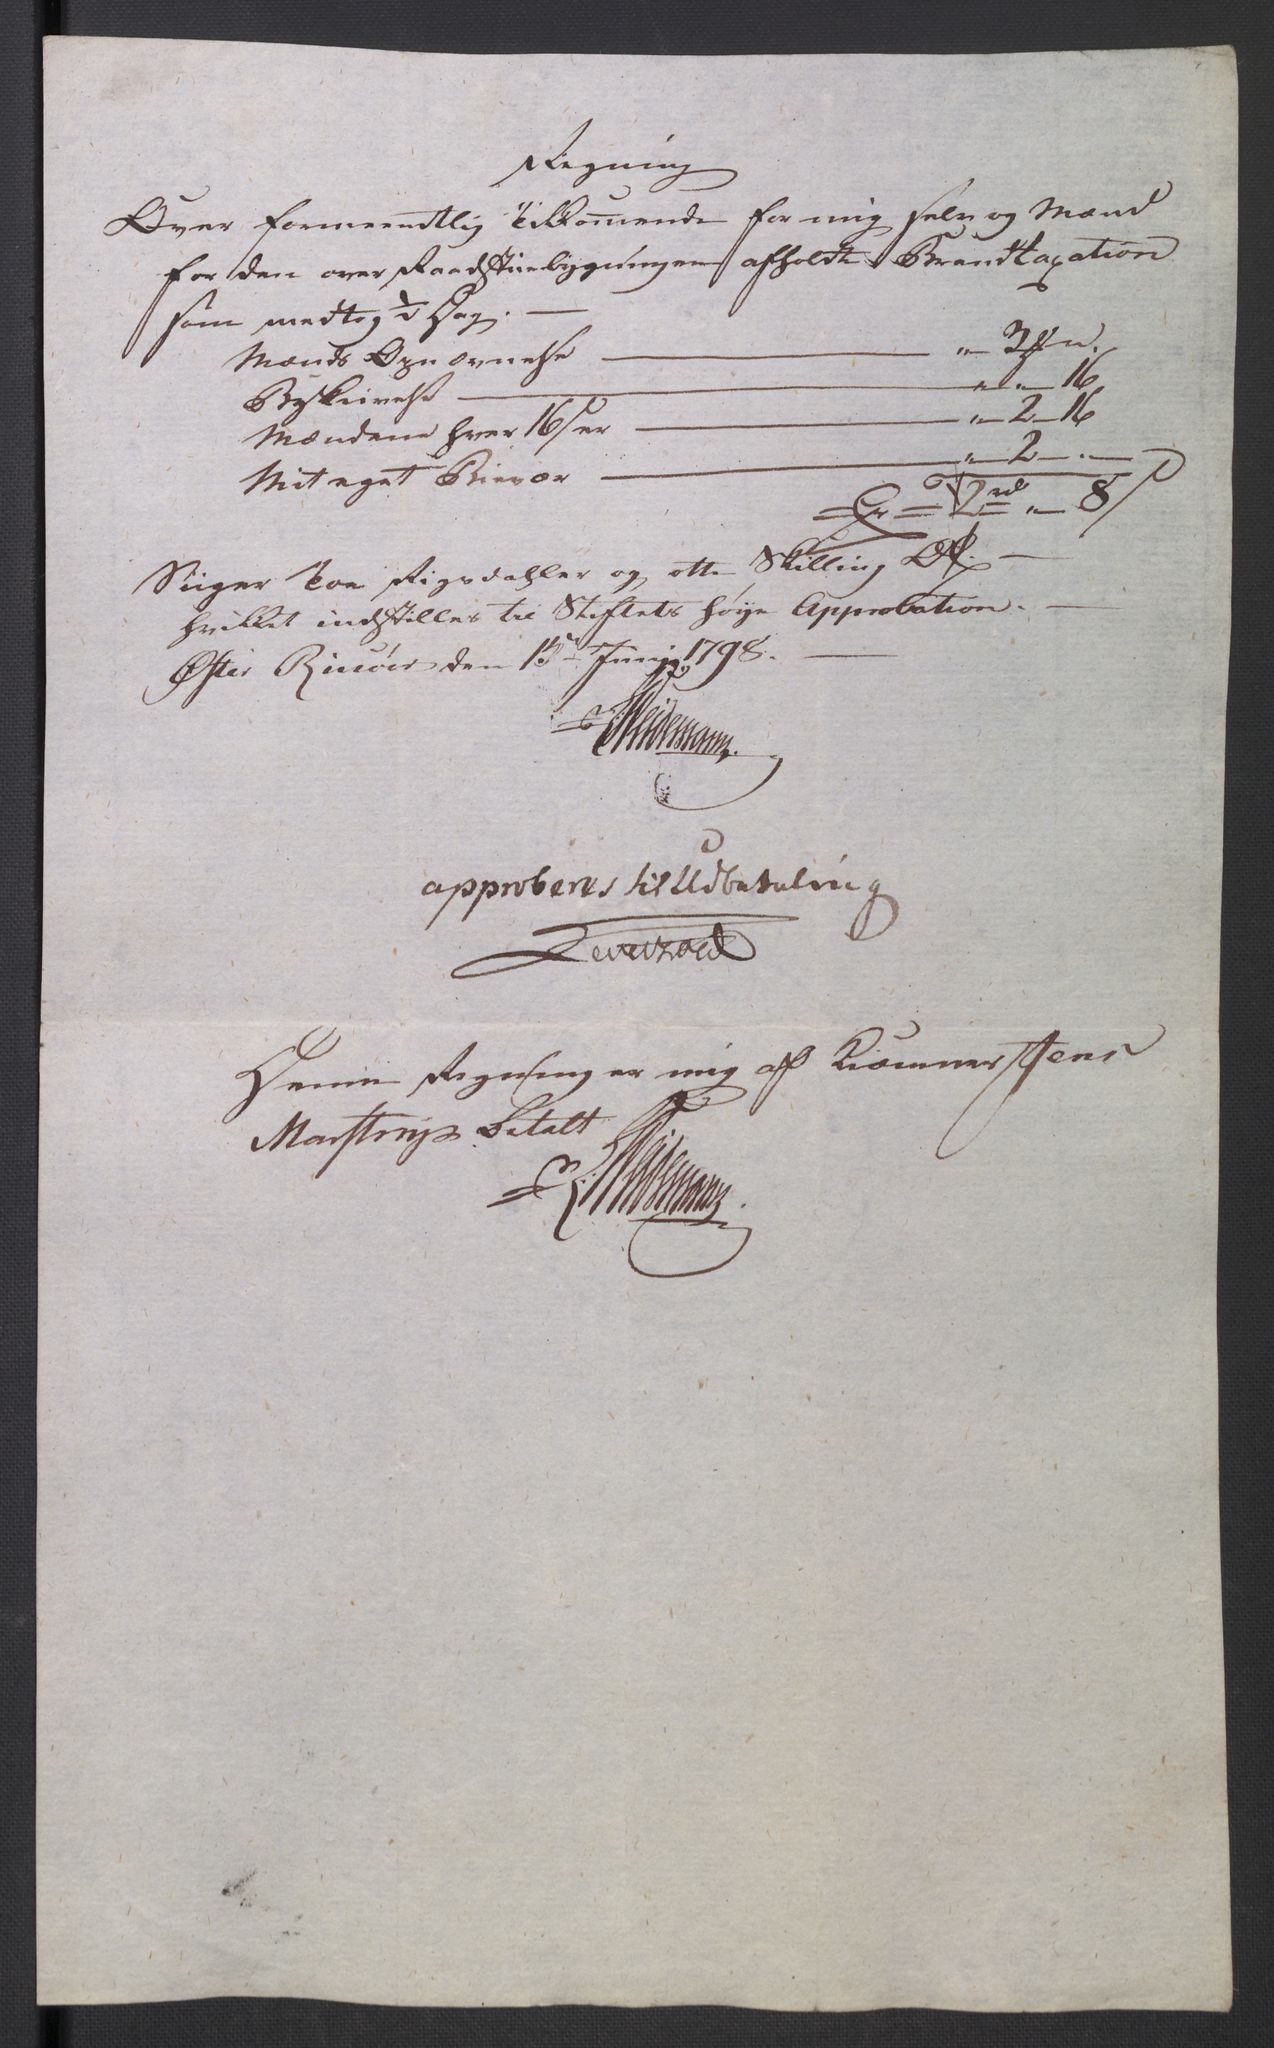 Regning
Over formeendtlig Tilkommende for mig selv og Mænd
for den over Raadstuebygningen afholdte Brandtaxation
som medtog ½ Dag. —
Mænds Opnævnelse — „ — 3 ₰ „.
Beskrivelse — „ — „ — 16
Mændene hver 16 s er — „ — 2 — 16
Mit eget Bievær — „ — 2 — . —
Er = 2 rd „ — 8 s
Siiger Toe Rigsdahler og otte Skilling
hvilket indstilles til Stiftets høye Approbation. —
Øster Riisøer den 13de Junij 1798. —
Weidemann.
approberes til Udbetaling
Levetzow
Denne Regning er mig af Kiæmner Jens
Marstrup betalt
Weidemann.